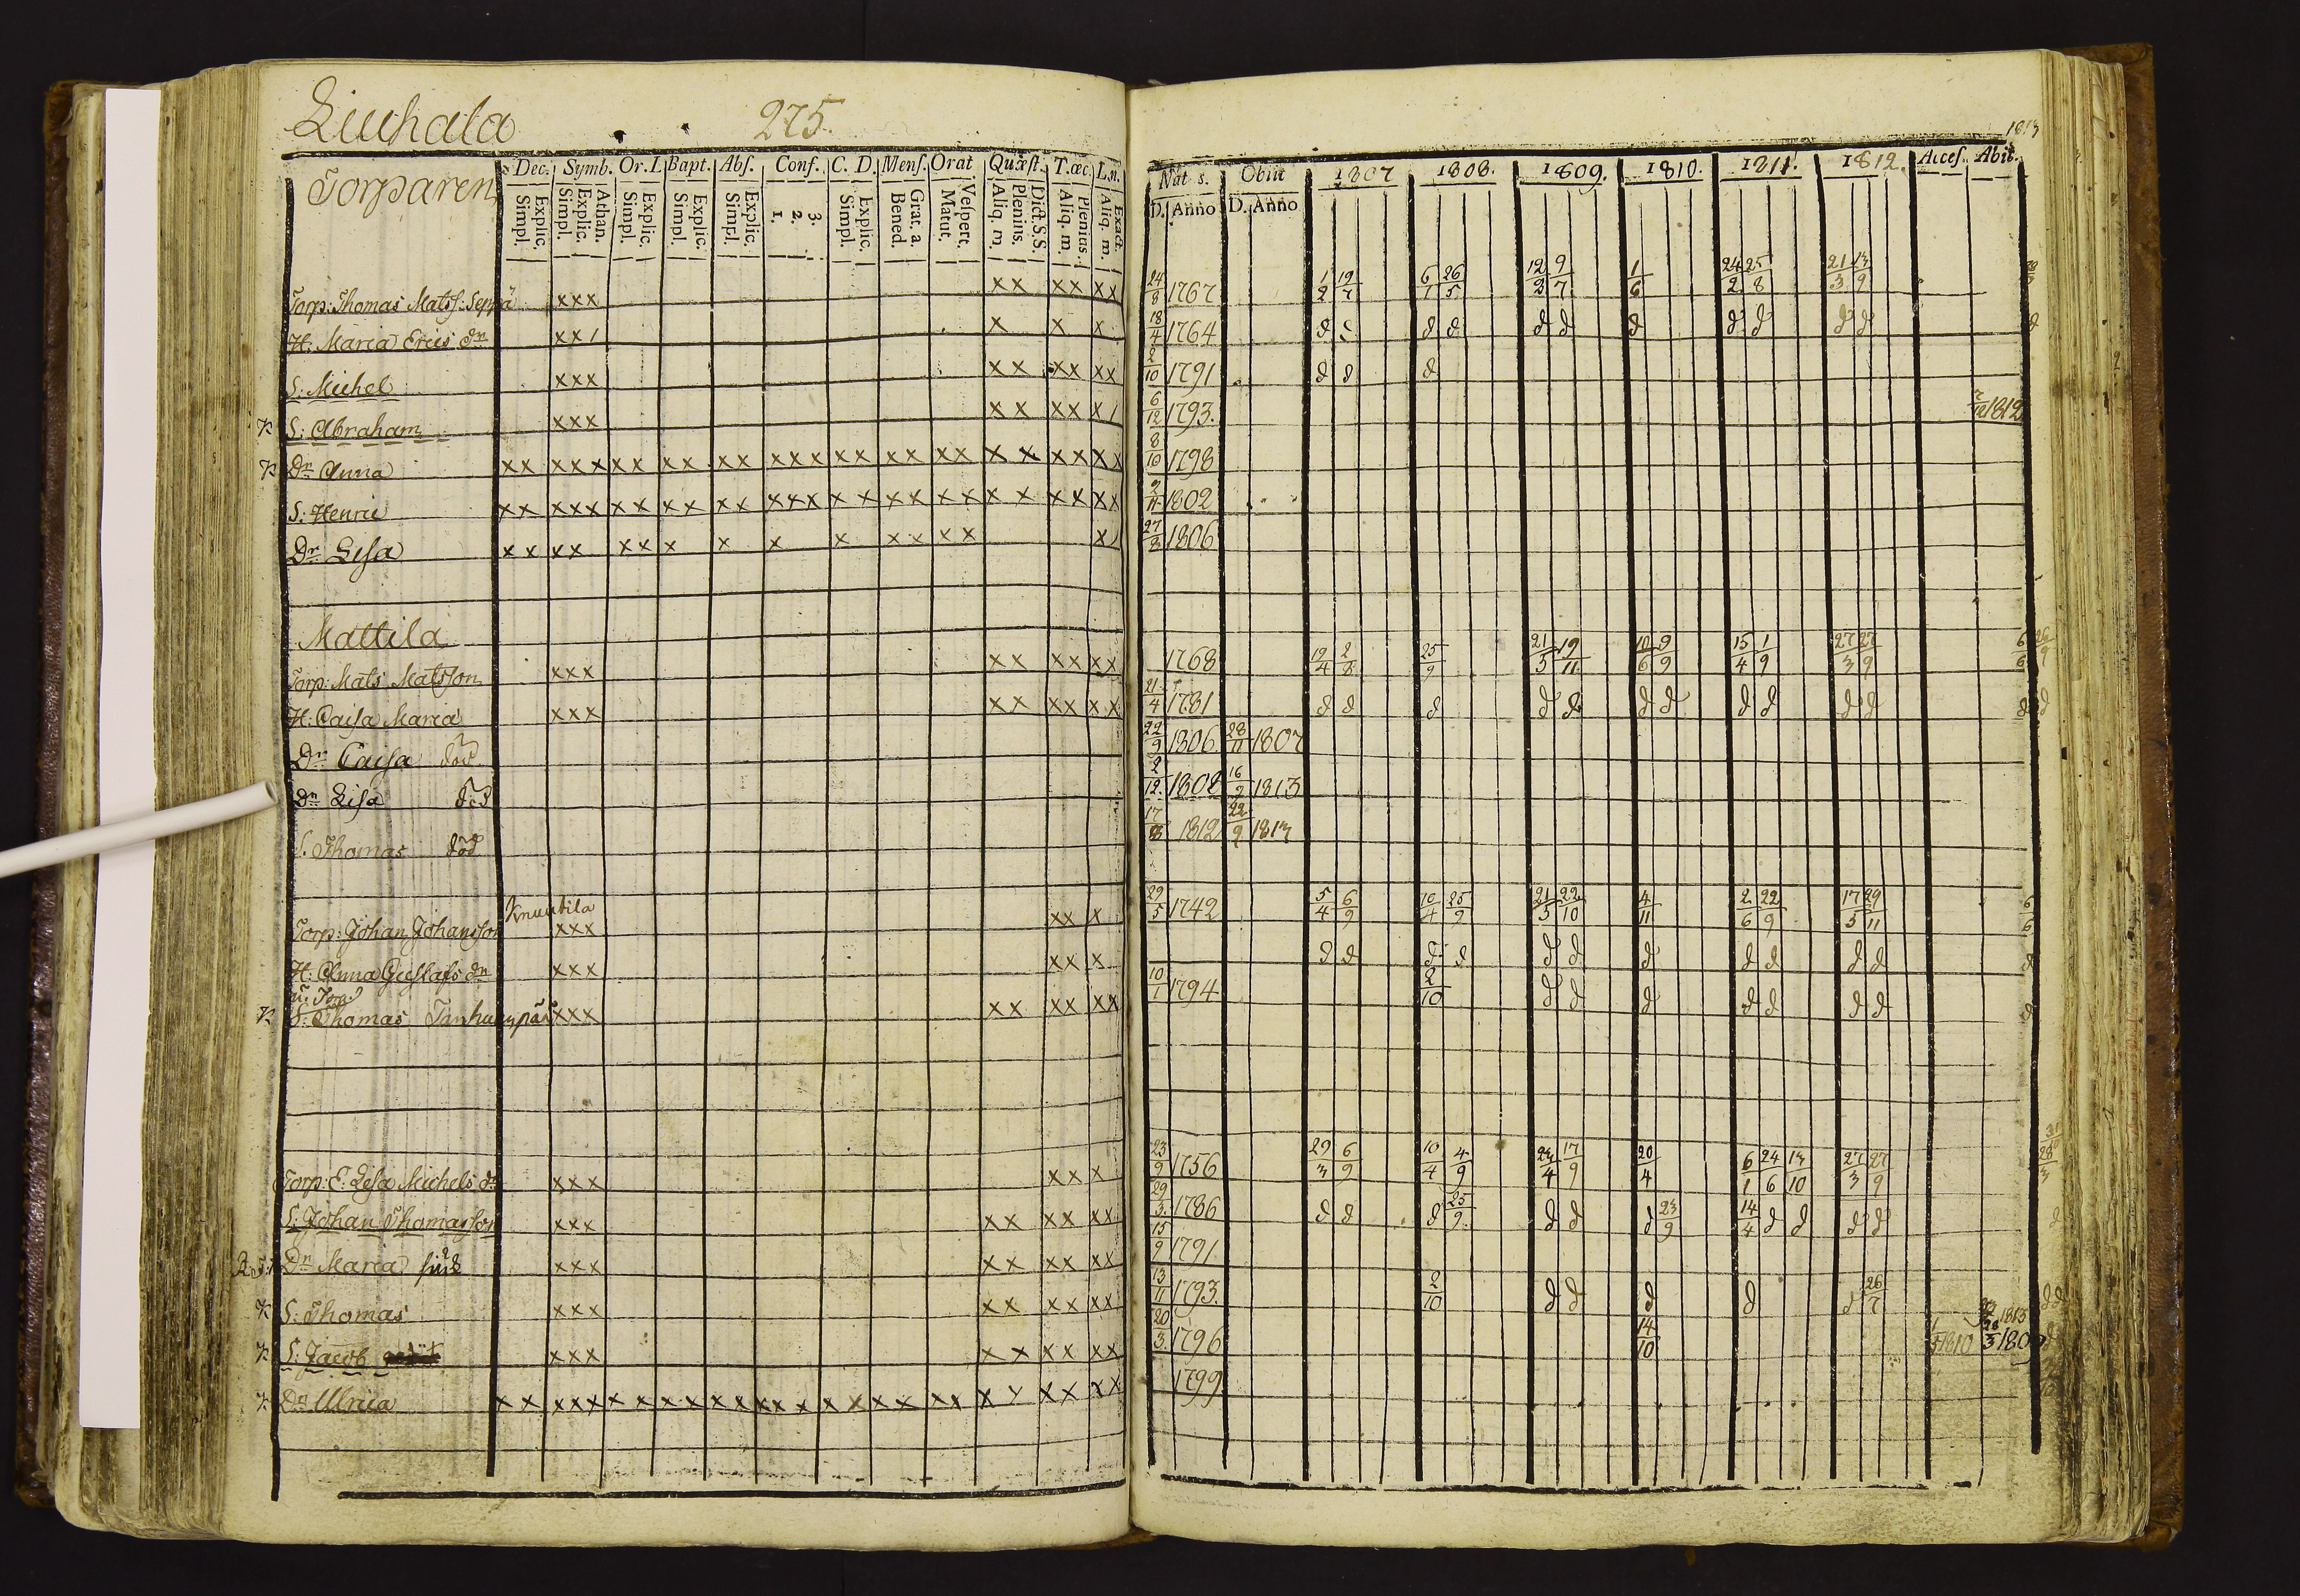 Liuhala 275.
Torparen
Dec. Symb. Or. L Bapt. Abs. Conf. C. D. Mens. Orat Quæst. T. œc. L. n.
Explic. Simpl. Athan. Explic. Simpl. Explic. Simpl. Explic. Simpl. Explic. Simpl. 3. 2. 1. Explic. Simpl. Grat. a. Bened. Vespert. Matut. Dict. S. S. Plenius. Aliq. m. Plenius. Aliq. m. Exact. Aliq. m.
Nat s. Obiit 1807 1808. 1809. 1810. 1811. 1812. Acces. Abit. 1813
D. Anno D. Anno
Torp: Thomas Matss: Seppä xxx xx xx xx 24/8 1767 1/2 19/7 6/1 26/5 12/2 9/7 1/6 24/2 25/8 21/3 13/9
H. Maria Erics dr xx/ x x x 18/4 1764 d d d d d d d d d d d d
S: Michel xxx xx xx xx 2/10 1791 d d d
S: Abraham xxx xx xx x/ 6/12 1793. 1812
Dr Anna xx xxx xx xx xx xxx xx xx xx xx xx xx 8/10 1798
S: Henric xx xxx xx xx xx xxx xx xx xx xx xx xx 1802
Dr Lisa xx xx xx x x x x xx xx x/ 27/8 1806
Mattila
Torp: Mats Matsson xxx xx xx xx 1768 19/4 2/8 25/9 21/5 19/11 10/6 9/9 15/4 1/9 27/3 27/9 6/6 26/9
H. Caisa Maria xxx xx xx xx 21/4 1781 d d d d d d d d d d d d d
Dr Caisa död 22/9 1806 28/11 1807
Dr Lisa död 2/12 1808 16/9 1813
S. Thomas död 1812 22/9 1813
Knuutila
Torp: Johan Johansson xxx xx x 29/5 1742 5/4 6/9 10/4 25/9 21/5 22/10 4/11 2/6 22/9 17/5 29/11 6/6
H: Anna Gustafs dr xxx xx x d d d d d d d d d d d d
S: Thomas Tanhuanpää xxx xx xx xx 10/1 1794 2/10 d d d d d d d d
Torp: E: Lisa Michels dr xxx xx x 23/9 1756 29/3 6/9 10/4 4/9 24/4 17/9 20/4 6/1 24/6 13/10 27/3 27/9 28/3
S. Johan Thomasson xxx xx xx xx 29/3 1786 d d d 25/9 d d d 23/9 14/4 d d d d d
Dr Maria xxx xx xx xx 15/9 1791
S: Thomas xxx xx xx xx 13/11 1793. 2/10 d d d d d 26/7 d d
S: Jacob xxx xx xx xx 20/3 1796 14/10 1810 1813 28/3 1809
Dr Ulrica xx xxx xx xx xx xxx xx xx xx xx xx xx 1799